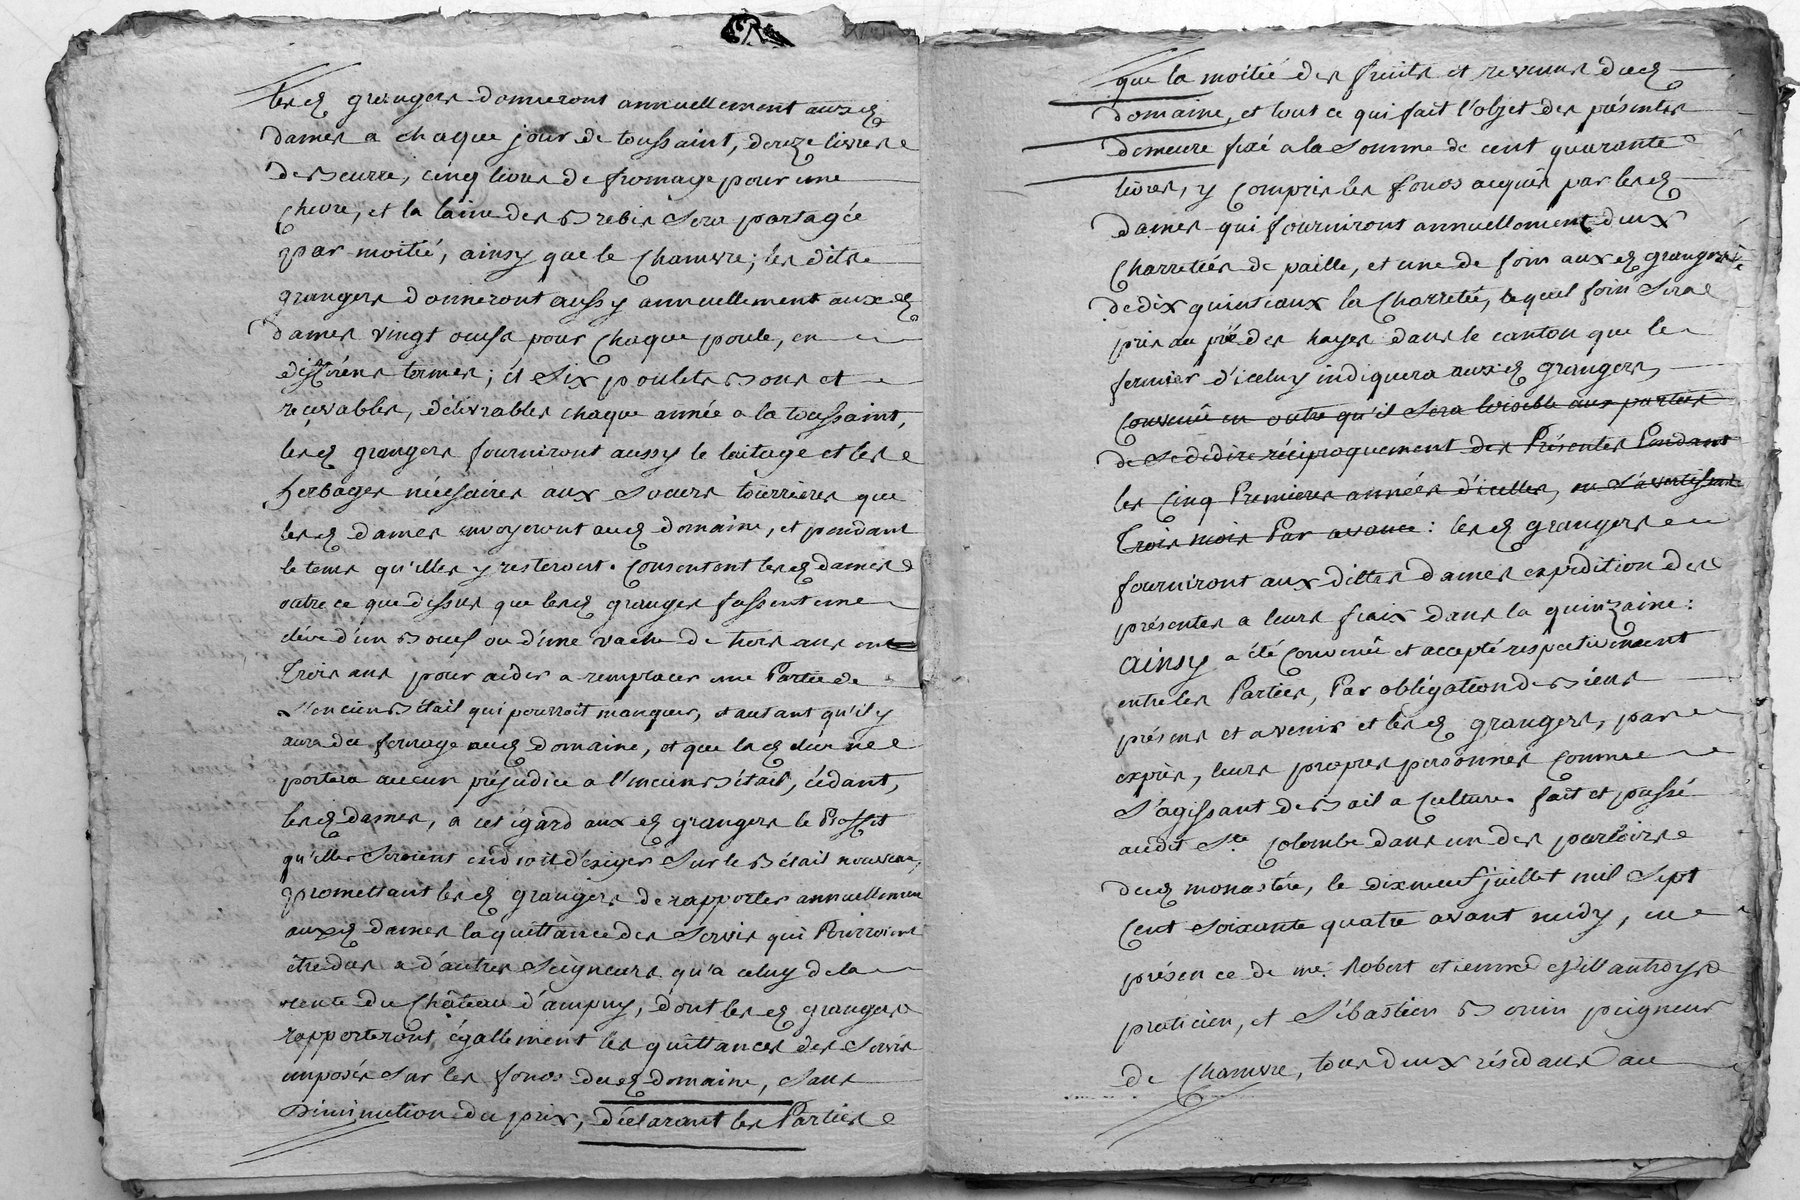 lesd. grangers donneront annuellement auxd.
dames a chaque jour de toussaint, douze livres
de Beurre, cinq livres de fromage pour une
chevre, et la laine des Brebis sera partagée
par moitié, ainsy que le chanvre; les dits
grangers donneront aussy annuellement auxd.
dames vingt oeufs pour chaque poule, en
différens termes; et six poulets Bons et
reçevables, délivrables chaque année a la toussaint,
lesd. grangers fourniront aussy le laitage et les
herbages nécessaires aux Soeurs tourrieres que
lesd. dames envoyeront aud. domaine, et pendant
le tems qu'elles y resteront. Consentent lesd. dames
outre ce que dessus que lesd. granger fassent une
éléve d'un Boeuf ou d'une vache de trois ans en
Trois ans pour aider a remplacer une Partie de
L'ancien Bétail qui pourroit manquer, et autant qu'il y
aura du fourage aud. domaine, et que lad. éléve ne
portera aucun préjudice a l'ancien Bétail, cédant,
lesd. dames, a cet égard auxd. grangers le Proffit
qu'elles seroient en droit d'exiger Sur le Bétail nouveau,
promettant lesd. grangers de rapporter annuellement
auxd. dames la quittance des Servis qui Pourroient
être dus a d'autres Seigneurs qu'a celuy de la
rente du Château d'ampuy, dont lesd. grangers
rapporteront égallement les quittances des Servis
imposés Sur les fonds dud. domaine, Sans
Diminution du prix, déclarant les Parties
que la moitié des fruits et revenus dud.
domaine, et tout ce qui fait l'objet des présentes
demeure fixé a la Somme de cent quarante
livres, y compris les fonds acquis par lesd.
dames qui fourniront annuellement deux
charretées de paille, et une de foin auxd. grangers
de dix quinteaux la Charretée, lequel foin Sera
pris au pré des hayes dans le canton que le
fermier d'iceluy indiquera auxd. grangers,
Convenû en outre qu'il Sera loisible aux parties
de Se dédire réciproquement des Présentes Pendant
les Cinq Premieres années d'icelles, en S'avertissant
Trois mois Par avance: lesd. grangers
fourniront aux dittes dames expédition des
présentes a leurs fraix dans la quinzaine:
Ainsy a été Convenû et accepté respectivement
entre les Parties, Par obligation de Biens
présens et avenir et lesd. grangers, par
exprès, leurs propres personnes comme
S'agissant de Bail a Culture. fait et passé
audit Ste. Colombe dans un des parloirs
dud. monastére, le dixneuf juillet mil Sept
Cent Soixante quatre avant midy, en
présence de me. Robert etienne
praticien, et Sébastien Bonin peigneur
de Chanvre, tous deux résidans au